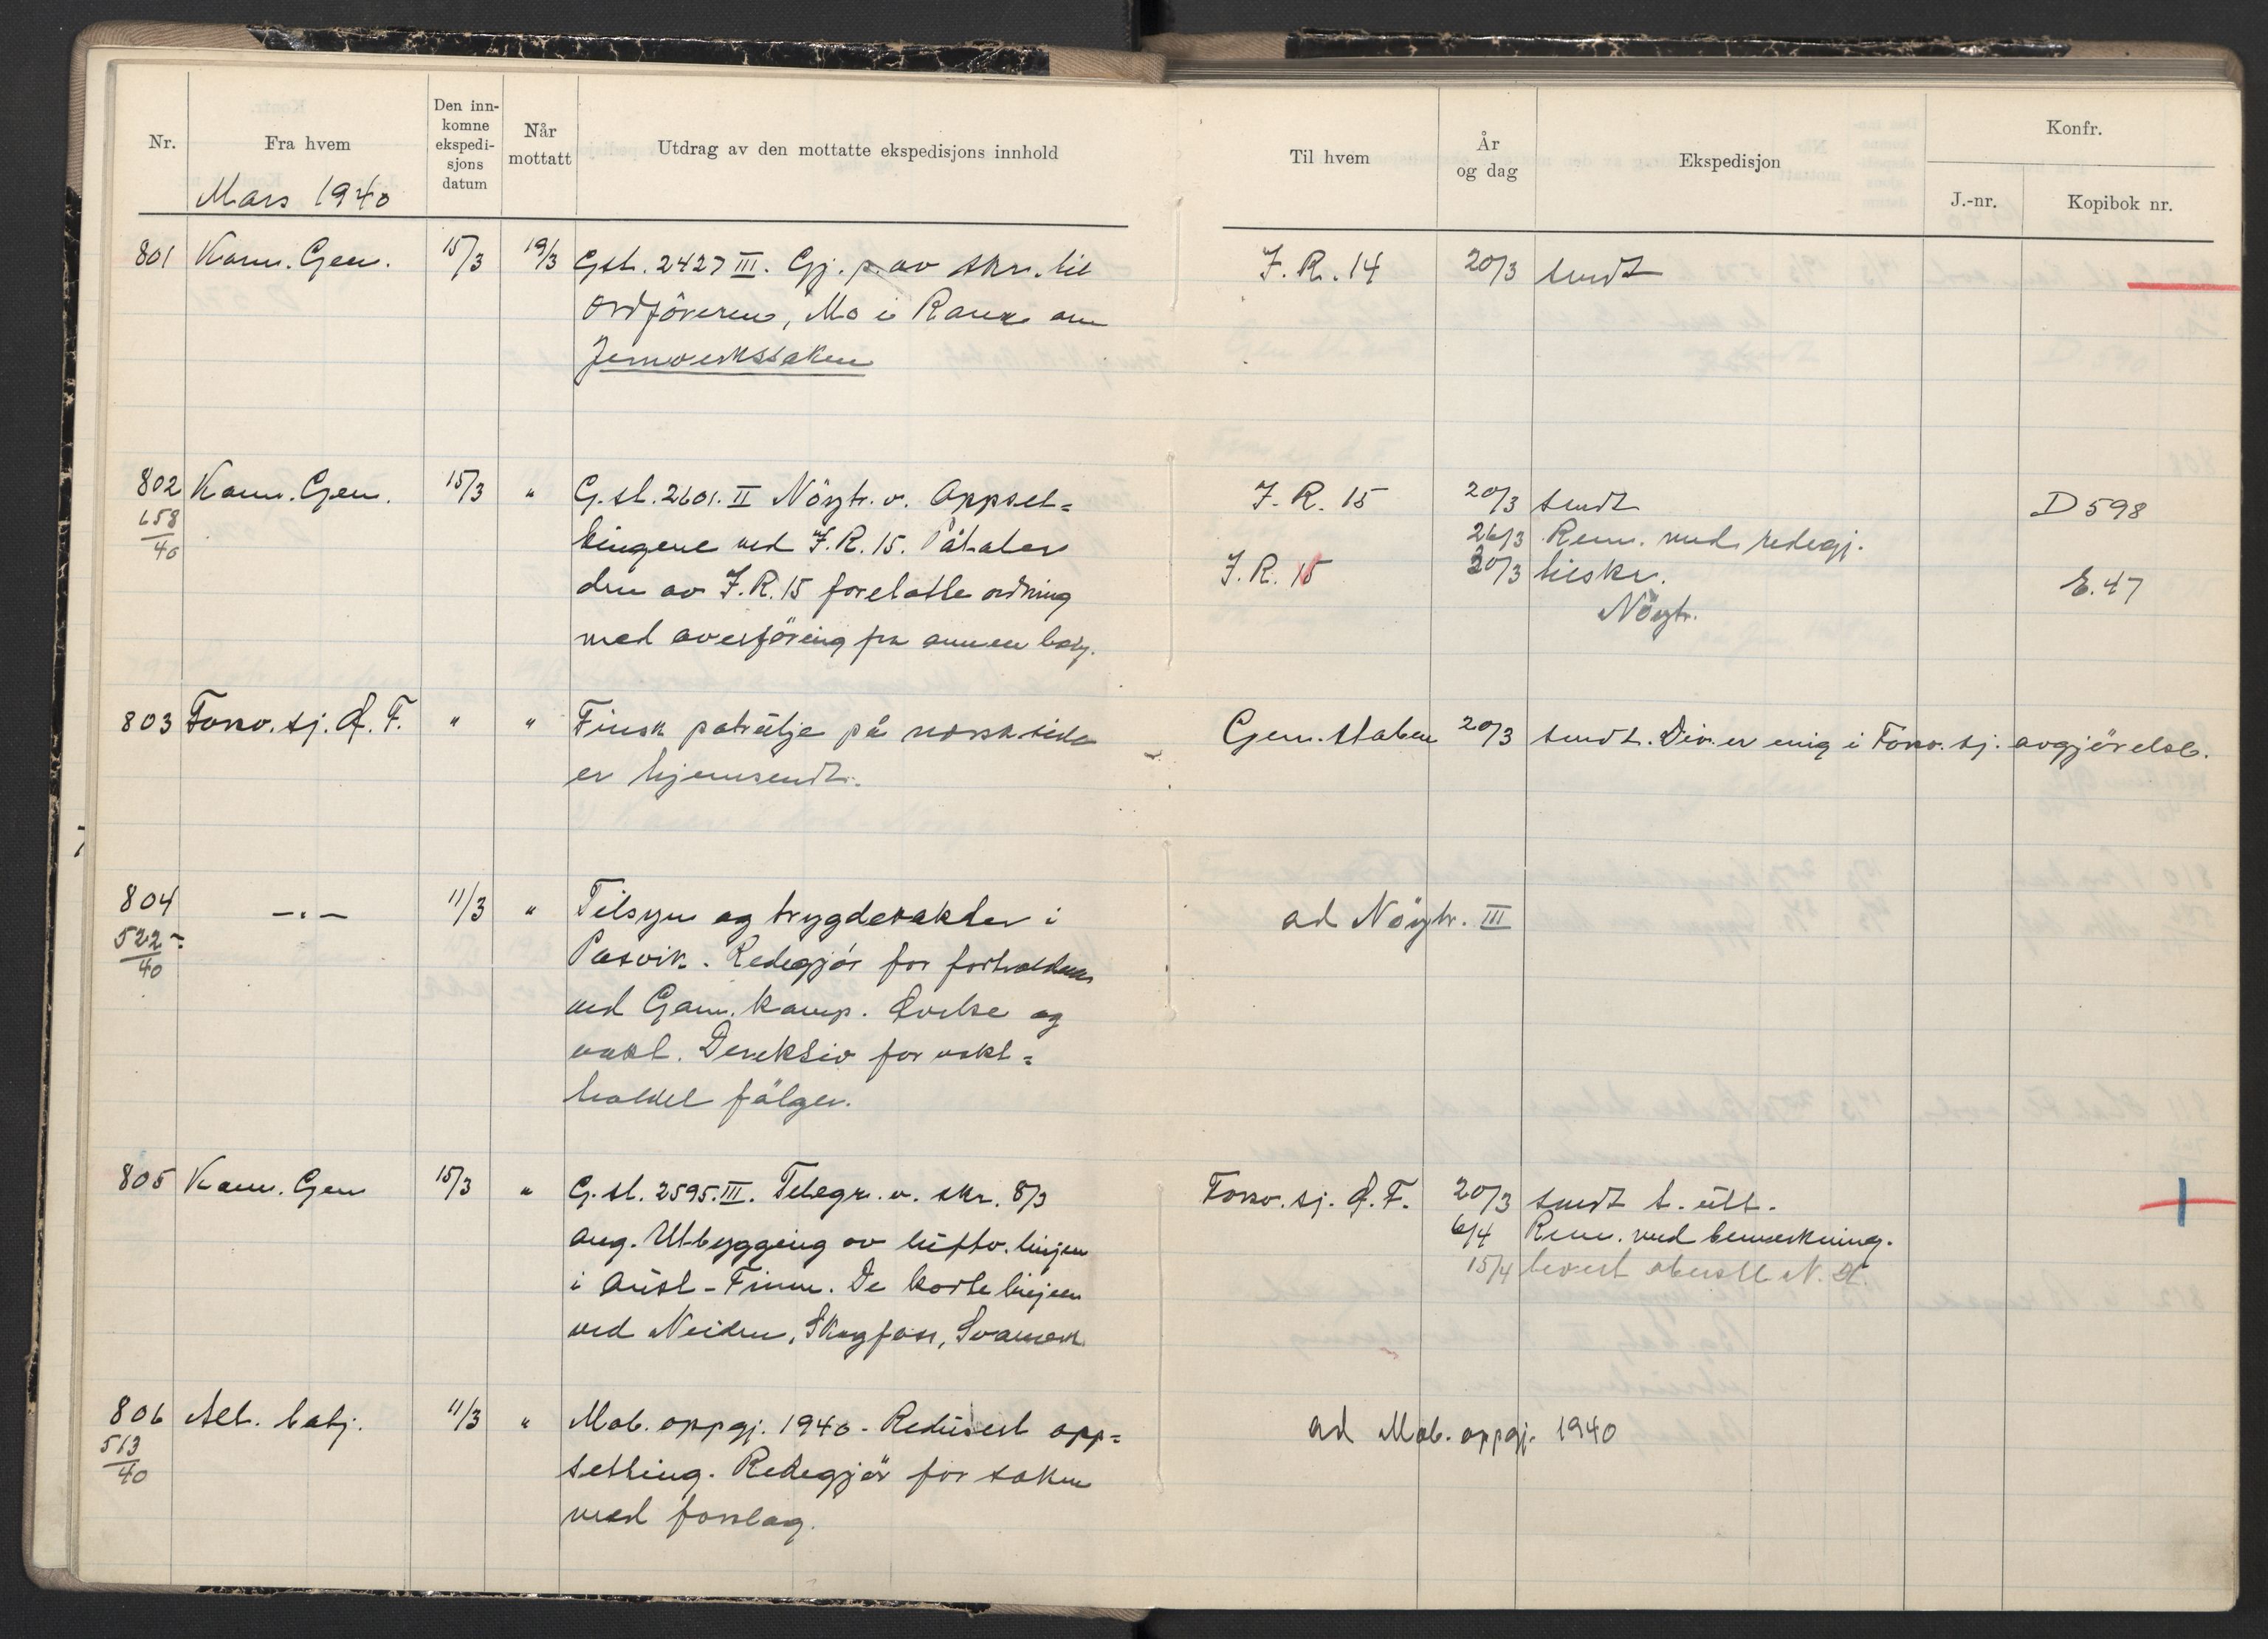 Nr.
Fra hvem
Den inn-
komne
ekspedi-
sjons
datum
Når
mottatt
Utdrag av den mottatte ekspedisjons innhold
Til hvem
År
og dag
Ekspedisjon
Konfr.
J.-nr.
Kopibok nr.
Mars 1940
801 Komm. Gen. 15/3 19/3 Gst. 2427 III. Gj. p. av skr. til
ordföreren, Mo i Rana om
Jernverkssaken
I.R. 14 20/3 sendt
802 Komm. Gen. 15/3 " G.st. 2601. II Nöytr. v. Oppset=
658
40
tingene ved I.R. 15. Påtaler
den av I.R. 15 foretatte ordning
med overföring fra annen batj.
I.R. 15 20/3 sendt D 598
26/3 Renn. med redegj.
I.R. 15 30/3 tilskr. E. 47
Nöytr.
803 Forsv. sj. Ø. F. " " Finsk patrulje på norsk side
er hjemsendt.
Gen. staben 20/3 sendt. Div. er enig i Forsv. sj. avgjörelse.
804 -"- 11/3 " Tilsyn og trygdevakter i
522
40
Pasvik. Redegjör for forholdene
ved Garn. komp. Øvelse og
vakt. Direktiv for vakt=
holdet fölger.
ad Nöytr. III
805 Komm. Gen 15/3 " G.st. 2595. III. Telegr. v. skr. 8/3
ang. Utbygging av luftv. linjen
i Aust-Finnm. De korte linjeen
ved Neiden, Skogfoss, Svanvik
Forsv. sj. Ø. F. 20/3 sendt t. utt.
6/4 Renn. med bemerkning.
15/4 levert oberstl N. H.
806 Alt. batj. 11/3 " Mob. oppgj. 1940. Redusert opp=
513
40
setting. Redegjör for saken
med forslag.
ad Mob. oppgj. 1940